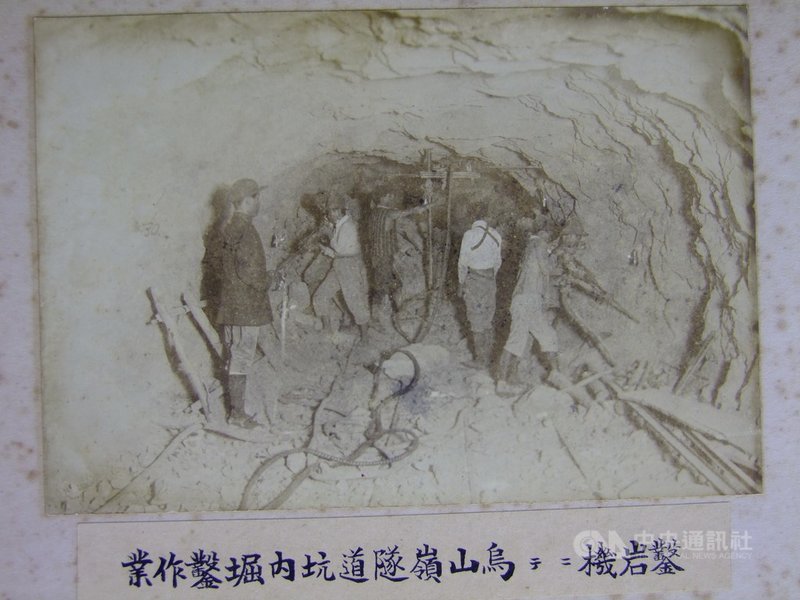 鑿岩機ニテ烏山嶺隧道坑内堀鑿作業
中央通訊社
CENTRAL NEWS AGENCY